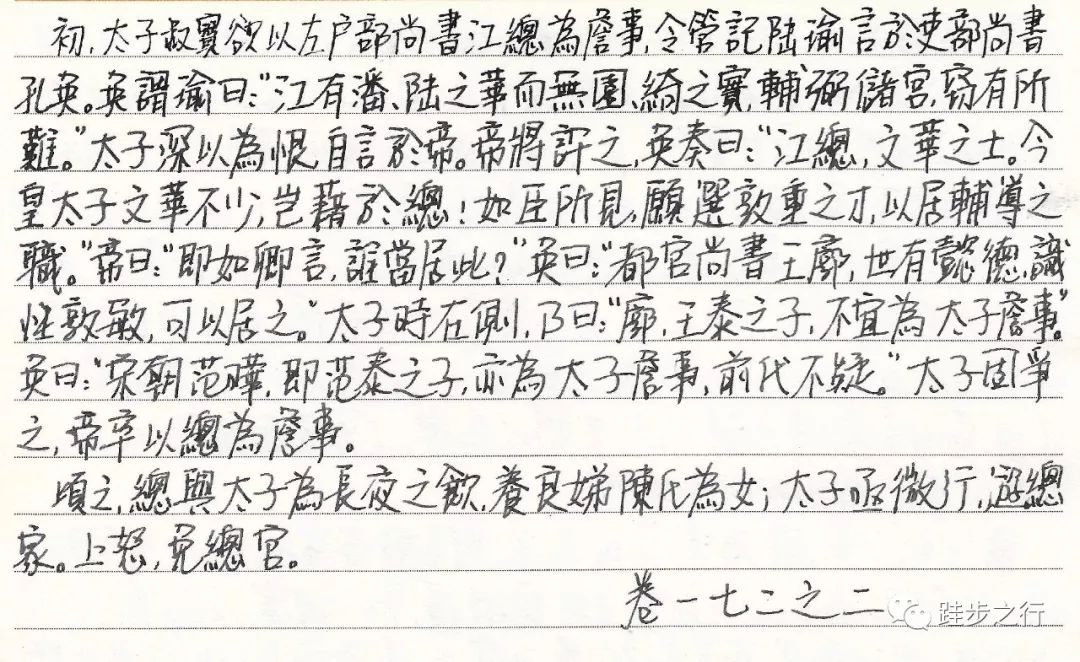 初,太子叔寶欲以左户部尚書江總為詹事,令管記陸瑜言於吏部尚書
孔奂。奂謂瑜曰:“江有潘、陸之華而無園、綺之實,輔弼儲宮,竊有所
難。”太子深以為恨,自言於帝。帝將許之,奂奏曰:“江總,文華之士。今
皇太子文華不少,岂藉於總!如臣所見,願選敦重之才,以居輔導之
職。”帝曰:“即如卿言,誰當居此?”奂曰:“都官尚書王廓,世有懿德,識
性敦敏,可以居之。”太子時在側,乃曰:“廓,王泰之子,不宜為太子詹事。”
奂曰:“宋朝范曄,即范泰之子,亦為太子詹事,前代不疑。”太子固爭
之,帝卒以總為詹事。
頃之,總與太子為長夜之飲,養良娣陳氏為女;太子亟微行,遊總
家。上怒,免總官。
卷一七二之二
跬步之行